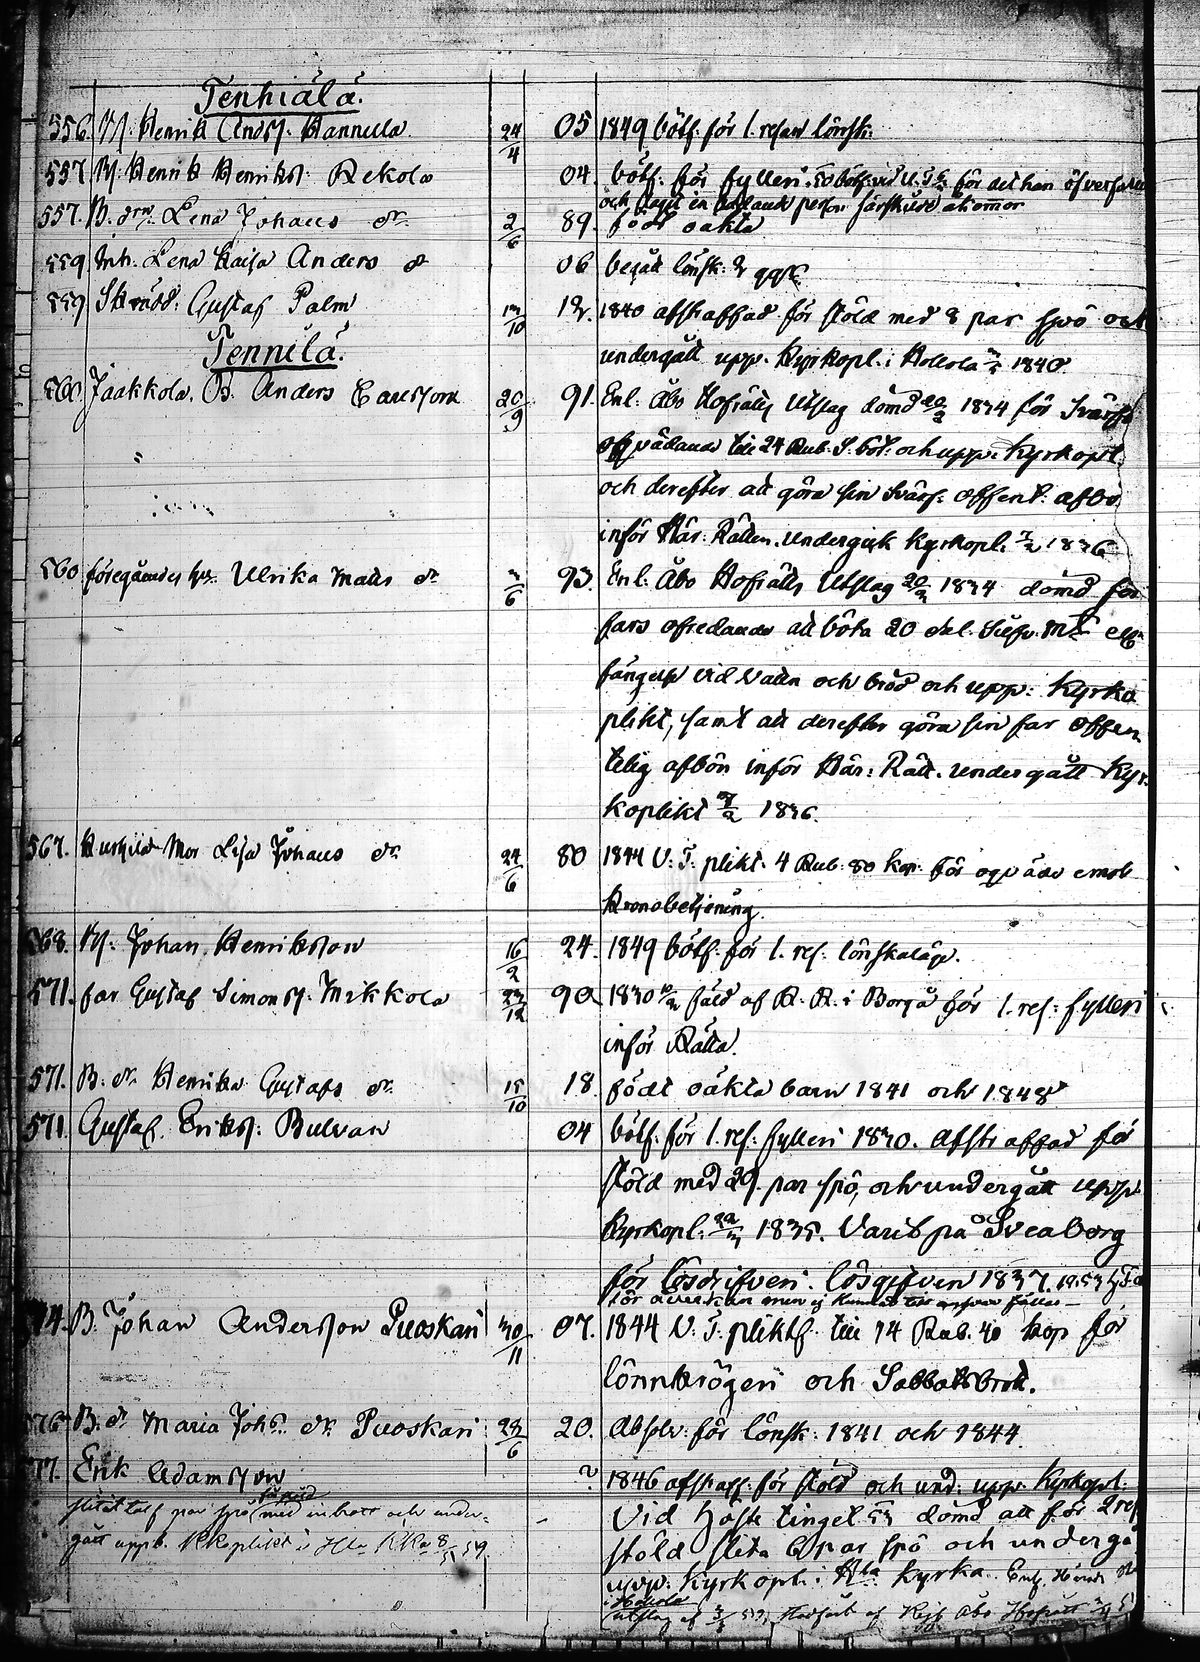 Tenhiälä.
556. M: Henrik Andss: Hannula 24/4 05 1849 bötf. för 1. resan lönsk:
557 M: Henrik Henrikss: Rekola 04. bötf. för fylleri. 50 bötf. vid U.T. för det han öfverfallit
och slaget en person särskilde åkommor
557. B. drn. Lena Johans dr 2/6 89. född oäkta
559 Inh. Lena Kaisa Anders dr 06 begått lönsk: 2 ggr
559 Skrädd. Gustaf Palm 10 12. 1840 afstraffad för stöld med 8 par spö och
undergått upp. Kyrkopl. i Hollola 1840
Tennilä.
560 Jaakkola, B. Anders Carlsson 20/9 91. Enl. Åbo Hofrätts Utslag dömd 20/2 1834 för Svärfs
oqvädande till 24 Rub. S. böt. och upp. Kyrkopl.
och derefter att göra sin Svärf. offent: afbö
inför Här. Rätten. Undergick Kyrkopl. 7/2 1836
560 föregåendes hu. Ulrika Matts dr 6 93. Enl. Åbo Hofrätts Utslag 20/2 1834 dömd för
fars ofredande att böta 20 dal. Silfv. Mt ell.
fängelse vid vattn och bröd och upp: Kyrko
plikt, samt att derefter göra sin far offen
telig afbön inför Här: Rätt. Undergått Kyr
koplikt 7/2 1836.
567. Huskild Mor Lisa Johans dr 24/6 80 1844 U. T. plikt. 4 Rub. 80 kop. för oqväde emot
Kronobetjening.
568. M: Johan Henriksson 16/2 24. 1849 bötf. för 1. res. lönskaläge.
571. far Gustaf Simonss: Mikkola 12 90. 1830 fäld af R. R. i Borgå för 1. res: fylleri
inför Rätta.
571. B. dr Henrika Gustafs dr 15/10 18 födt oäkta barn 1841 och 1848
571 Gustaf Erikss: Bulvan 04 bötf. för 1. res: fylleri 1830. Afstraffad för
stöld med 29 par spö, och undergått upp
Kyrkopl. 1835. Varit på Sveaborg
för lösdrifveri. lösgifven 1837. 1853
för åverkan men ej kunnat till fällas
74. B. Johan Andersson Puoskari 30/11 07. 1844 U. T. pliktf. till 14 Rub. 40 kop för
lönnkrögeri och Sabbatsbrott.
576 B. dr Maria Johs dr Puoskari 6 20. Absolv. för lönsk: 1841 och 1844.
77. Erik Adamsson ? 1846 afstraff. för stöld och und. upp. Kyrkopl.
slitit tolf par spö med inbrott och under- Vid Höste tinget 53 dömd att för 2 res
gått uppb. Kkoplikt i Hla Kka 8/5 54. stöld slita 6 par spö och undergå
upp. Kyrkopl. i Hla Kyrka. Enl. Härads
i Hollola
utslag af 53, stadfäst af Kejs Åbo Hofrätt